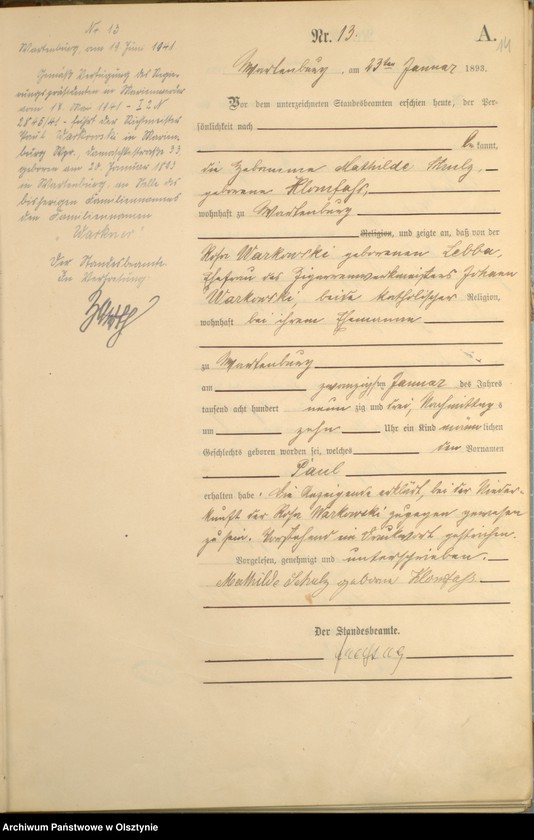 Nr. 13
Wartenburg, am 14. Juni 1941
Gemäß Verfügung des Regie-
rungspräsidenten in Marienwerder
vom 18. Mai 1941 - I 2 N
2845/41 - führt der
Paul Warkowski in Marien-
burg Wpr.,
geboren am 20. Januar 1893
in Wartenburg, an Stelle des
bisherigen Familiennamens
den Familiennamen
„Warkner“
Der Standesbeamte
In Vertretung
Nr. 13
A.
14
Wartenburg, am 23ten Januar 1893.
Vor dem unterzeichneten Standesbeamten erschien heute, der Per-
sönlichkeit nach
be kannt,
die Hebamme Mathilde Schulz,
geborene Klomfass,
wohnhaft zu Wartenburg
Religion, und zeigte an, daß von der
Rosa Warkowski geborenen Lebba,
Ehefrau des Ziegeleiwerkmeisters Johann
Warkowski, beide katholischer Religion,
wohnhaft bei ihrem Ehemanne
zu Wartenburg
am zwanzigsten Januar des Jahres
tausend acht hundert neun zig und drei, Nachmittags
um zehn Uhr ein Kind männlichen
Geschlechts geboren worden sei, welches den Vornamen
Paul
erhalten habe. Die Anzeigende erklärt, bei der Nieder-
kunft der Rosa Warkowski zugegen gewesen
zu sein. Vorstehend ein Druckwort gestrichen.
Vorgelesen, genehmigt und unterschrieben.
Mathilde Schulz geboren Klomfaß
Der Standesbeamte.
Freitag
Archiwum Państwowe w Olsztynie